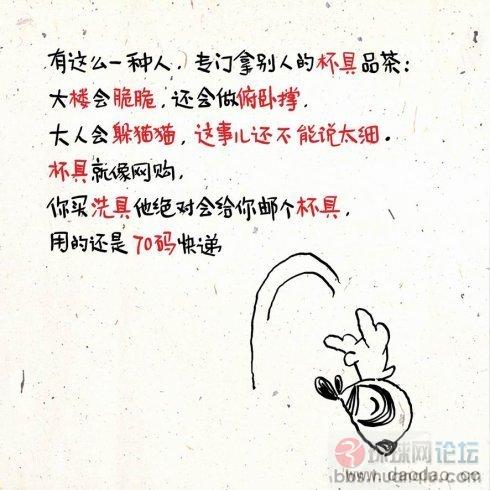 有这么一种人，专门拿别人的杯具品茶：
大楼会脆脆，还会做俯卧撑，
大人会躲猫猫，这事儿还不能说太细。
杯具就像网购，
你买洗具他绝对会给你邮个杯具，
用的还是70码快递
环球网论坛
www.daodao.cc